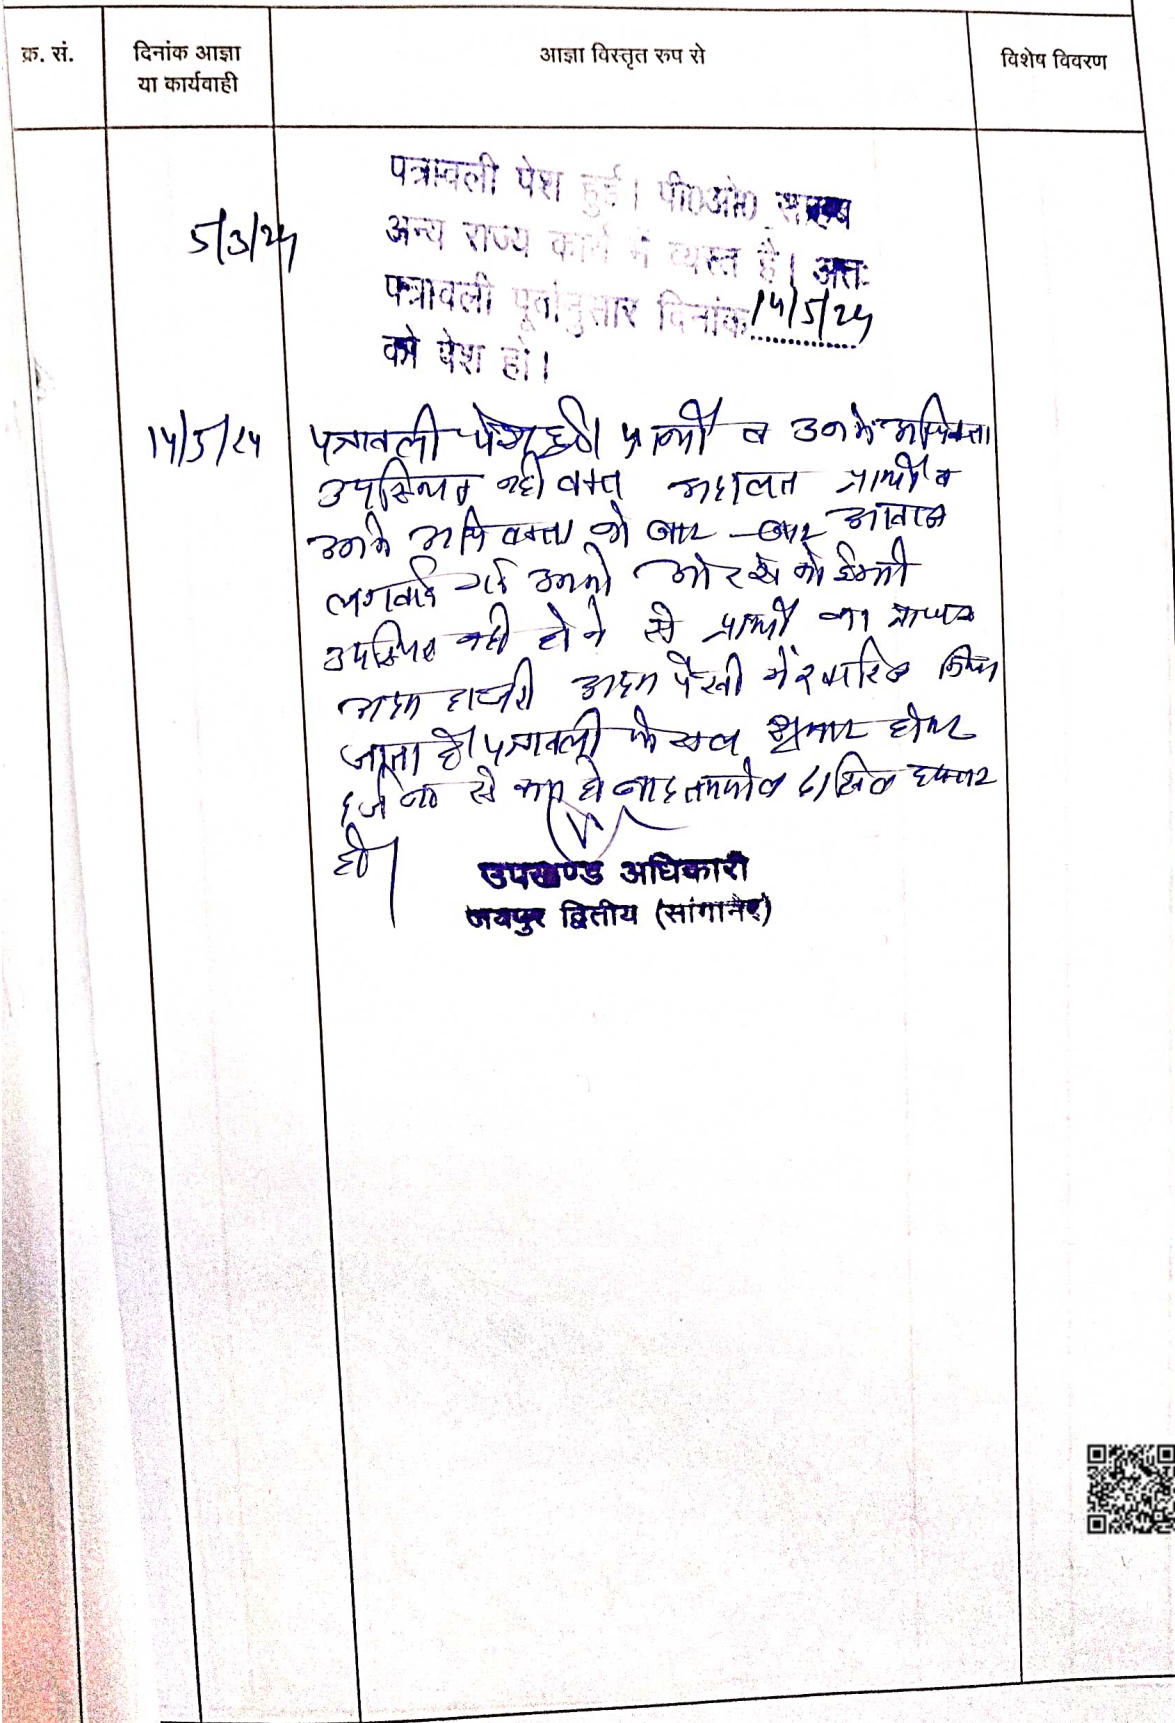 क्र. सं.
दिनांक आज्ञा
या कार्यवाही
आज्ञा विस्तृत रुप से
विशेष विवरण
पत्रावली पेश हुई। पी0ओ0 साहब
अन्य राज्य कार्य में व्यस्त है। अतः
पत्रावली पूर्वानुसार दिनांक 14/5/24
को पेश हो।
5/3/24
14/5/24
पत्रावली पेश हुई। प्रार्थी व उनके अधिवक्ता
उपस्थित नहीं वक्त अदालत प्रार्थी व
उनके अधिवक्ता को बार-बार आवाज
लगवाई गई उनकी ओर से कोई भी
उपस्थित नहीं होने से प्रार्थी का प्रा०पत्र
अदम हाजरी अदम पैरवी में खारिज किया
जाता है। पत्रावली फैसल शुमार होकर
दर्ज नं० से कम हो बाद तकमील दाखिल दफ्तर
हो।
उपखण्ड अधिकारी
जयपुर द्वितीय (सांगानेर)